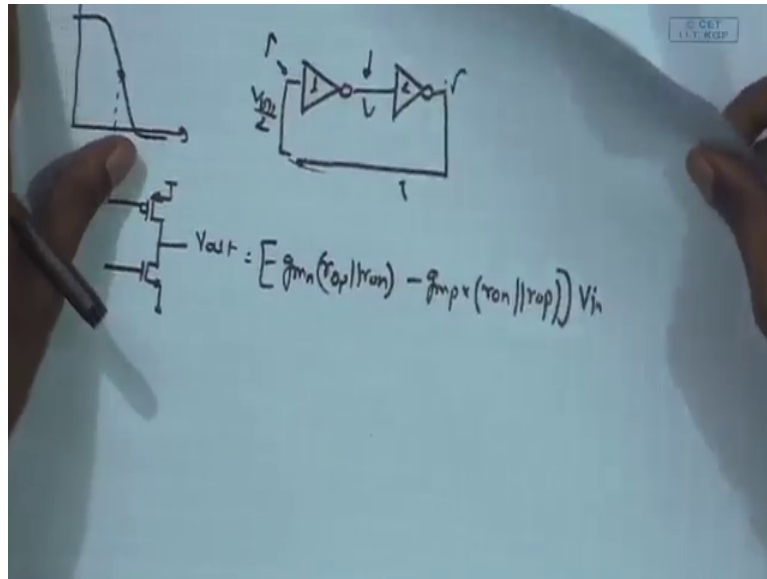 © CET
I.I.T. KGP
1
2
Vout = [- gmn (rop||ron) - gmp x (ron||rop)] Vin